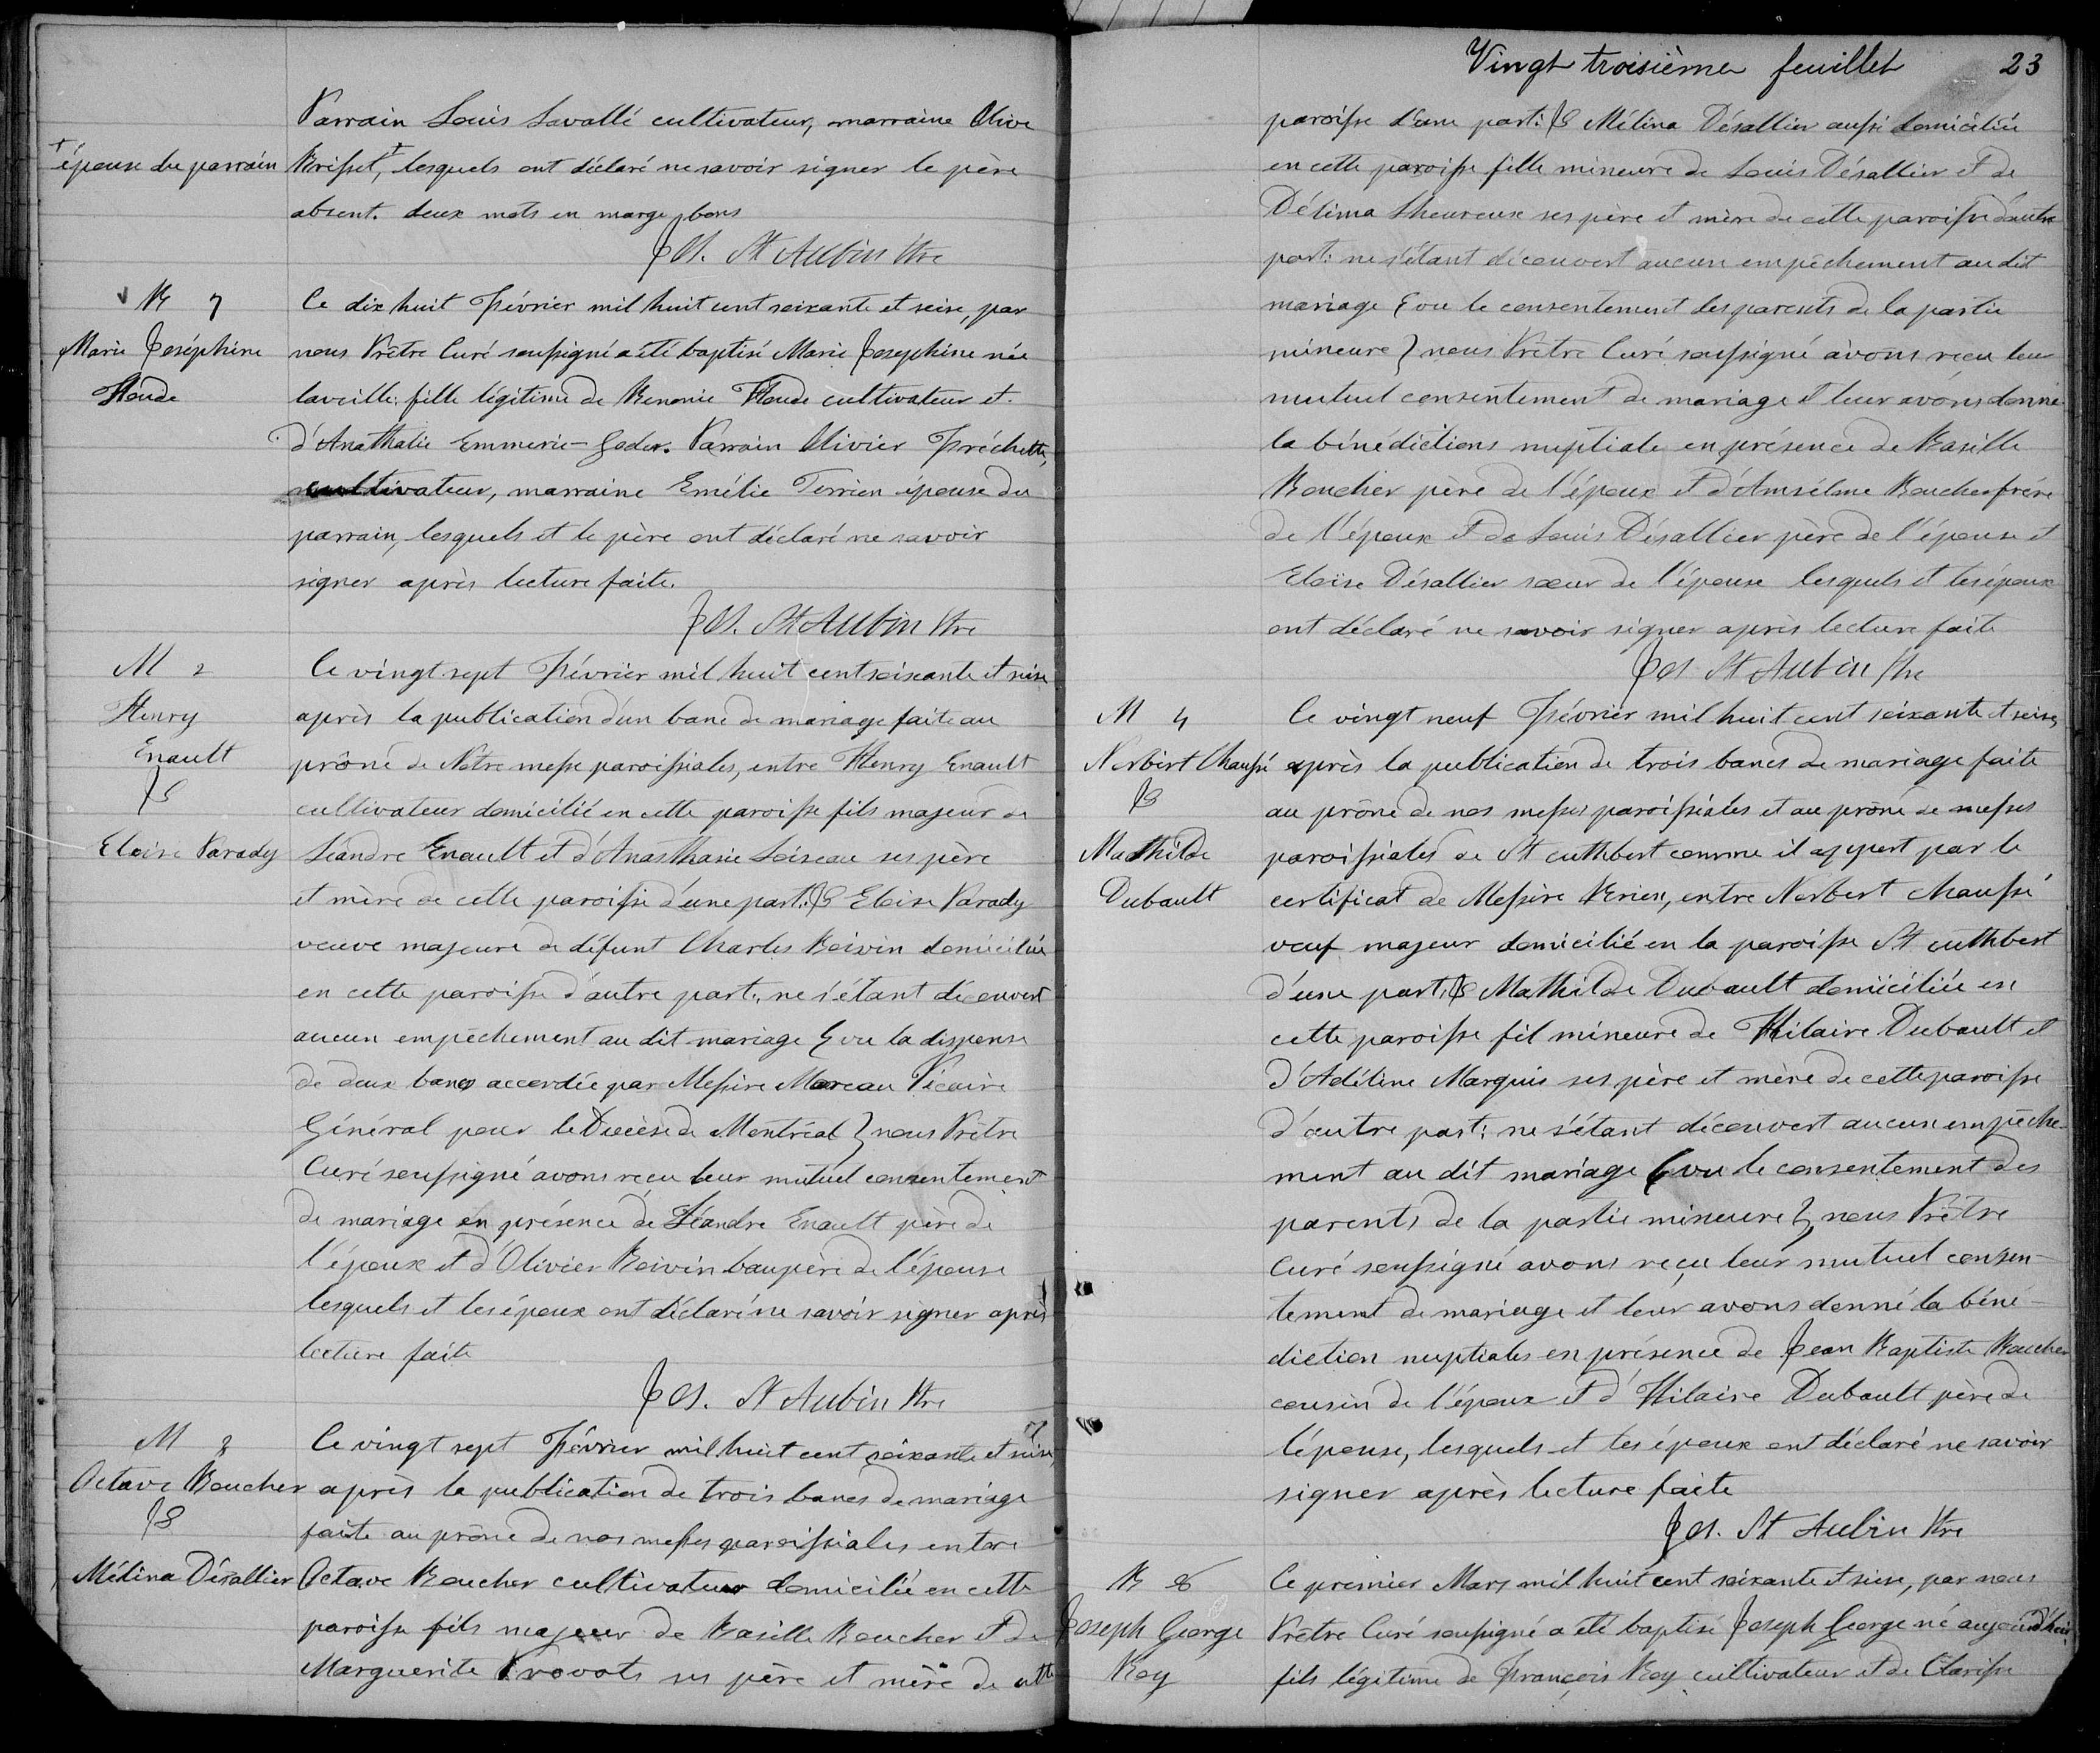 Parrain Louis Lavallé cultivateur, marraine Olive
+ épouse du parrain
Brisset,+ lesquels ont déclaré ne savoir signer le père
absent. deux mots en marge bons
Jos. St Aubin Ptre
B 7
Marie Joséphine
Houde
Ce dix huit Février mil huit cent soixante et seize, par
nous Prêtre Curé soussigné a été baptisé Marie Josephine née
la veille, fille légitime de Benonie Houde cultivateur et
d'Anathalie Emmerie-Coder. Parrain Olivier Fréchette,
cultivateur, marraine Emélie Terrien épouse du
parrain, lesquels et le père ont déclaré ne savoir
signer après lecture faite.
Jos. St Aubin Ptre
M 2
Henry
Enault
&
Eloise Parady
Ce vingt sept Février mil huit cent soixante et seise
après la publication d'un banc de mariage faite au
prône de Notre messe paroissiales, entre Henry Enault
cultivateur domicilié en cette paroisse fils majeur de
Léandre Enault et d'Anasthasie Loiseau ses père
et mère de cette paroisse d'une part: & Eloise Parady
veuve majeure de défunt Charles Boivin domiciliée
en cette paroisse d'autre part:, ne s'étant découvert
aucun empêchement au dit mariage { vu la dispense
de deux bancs accordée par Messire Moreau Vicaire
Général pour le Diocèse de Montréal } nous Prêtre
Curé soussigné avons reçu leur mutuel consentement
de mariage en présence de Léandre Enault père de
l'époux et d'Olivier Boivin baupère de l'épouse
lesquels et les époux ont déclaré ne savoir signer après
lecture faite
Jos. St Aubin Ptre
M 3
Octave Boucher
&
Mélina Désallier
Ce vingt sept Février mil huit cent soixante et seise,
après la publication de trois bancs de mariage
faite au prône de nos messes paroissiales entre
Octave Boucher cultivateur domiciliée en cette
paroisse fils majeur de Basille Boucher et de
Marguerite Provots ses père et mère de cette
Vingt troisième feuillet 23
paroisse d'une part: & Mélina Désallier aussi domiciliée
en cette paroisse fille mineure de Louis Désallier et de
Délima Lheureux ses père et mère de cette paroisse d'autre
part: ne s'étant découvert aucun empêchement au dit
mariage { vu le consentement des parents de la partie
mineure } nous Prêtre Curé soussigné avons reçu leur
mutuel consentement de mariage et leur avons donné
la bénédictions nuptiale en présence de Basille
Boucher père de l'époux et d'Amsélme Boucher frère
de l'époux et de Louis Désallier père de l'épouse et
Eloïse Désallier sœur de l'épouse lesquels et les époux
ont déclaré ne savoir signer après lecture faite
Jos St Aubin Ptre
M 4
Norbert Chaussé
&
Mathilde
Dubault
Ce vingt neuf Février mil huit cent soixante et seize,
après la publication de trois bancs de mariage faite
au prône de nos messes paroissiales et au prône de messes
paroissiales de St cuthbert comme il appert par le
certificat de Messire , entre Norbert chaussé
veuf majeur domicilié en la paroisse St cuthbert
d'une part: & Mathilde Dubault domiciliée en
cette paroisse fil mineure de Hilaire Dubault et
d'Adéline Marquis ses père et mère de cette paroisse
d'autre part: ne s'étant découvert aucun empêche-
ment au dit mariage { vu le consentement des
parents de la partie mineure } nous Prêtre
Curé soussigné avons reçu leur mutuel consen-
tement de mariage et leur avons donné la béné-
diction nuptiales en présence de Jean Baptiste Boucher
cousin de l'époux et d'Hilaire Dubault père de
l'épouse, lesquels et les époux ont déclaré ne savoir
signer après lecture faite
Jos. St Aubin Ptre
B 8
Joseph George
Roy
Ce premier Mars mil huit cent soixante et seise, par nous
Prêtre Curé soussigné a été baptisé Joseph George né aujourd'hui
fils légitime de François Roy cultivateur et de Clarisse